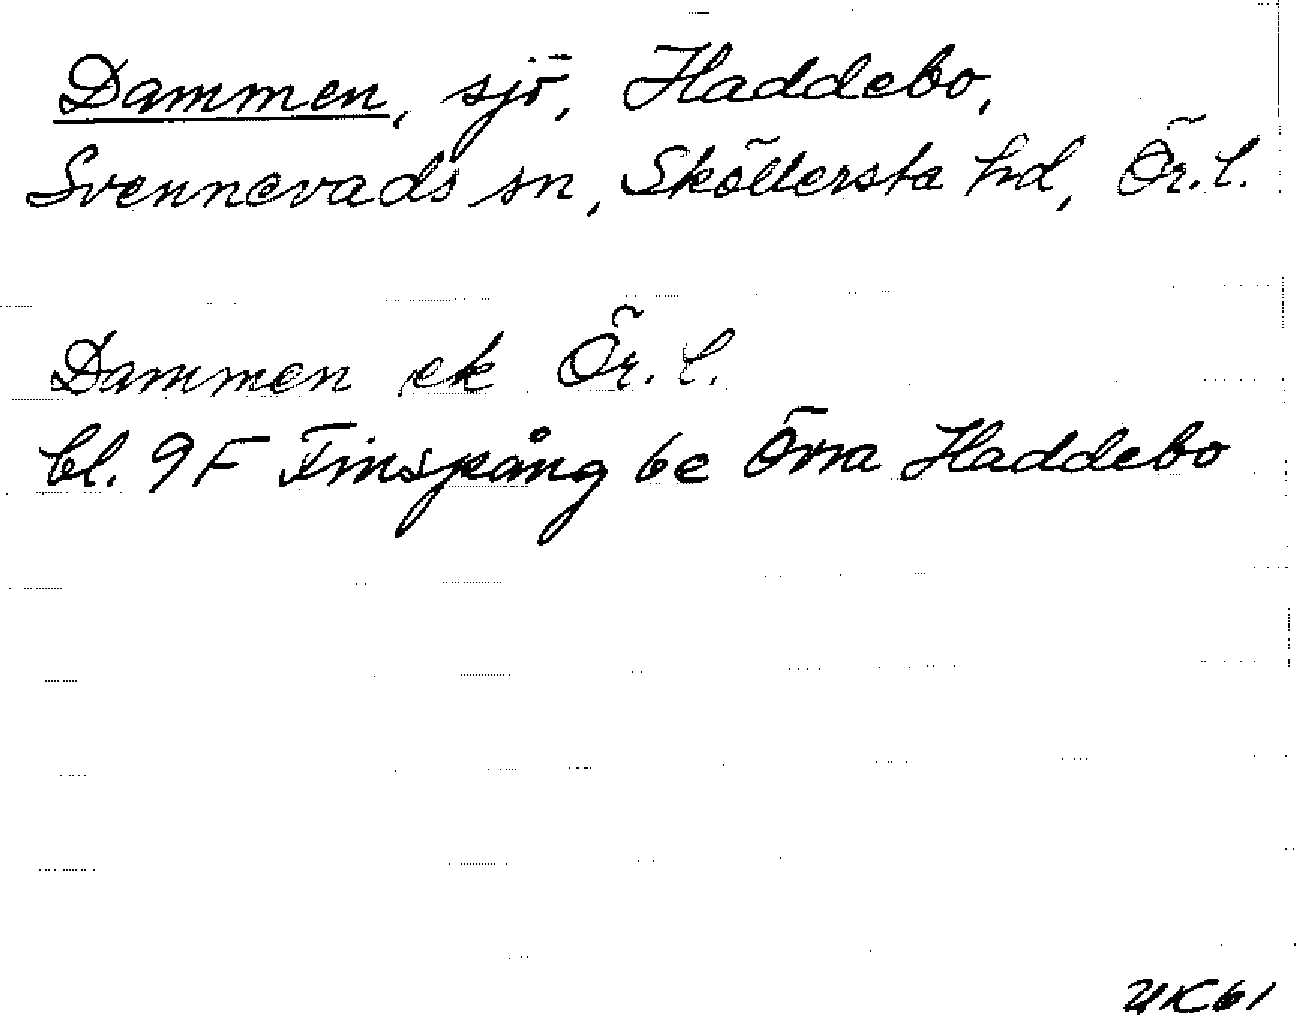 Dammen, sjö, Haddebo,
Svennevads sn, Sköllersta hd, Ör. l.
Dammen ek Ör. l.
bl. 9F Finspång 6e Övra Haddebo
UK61